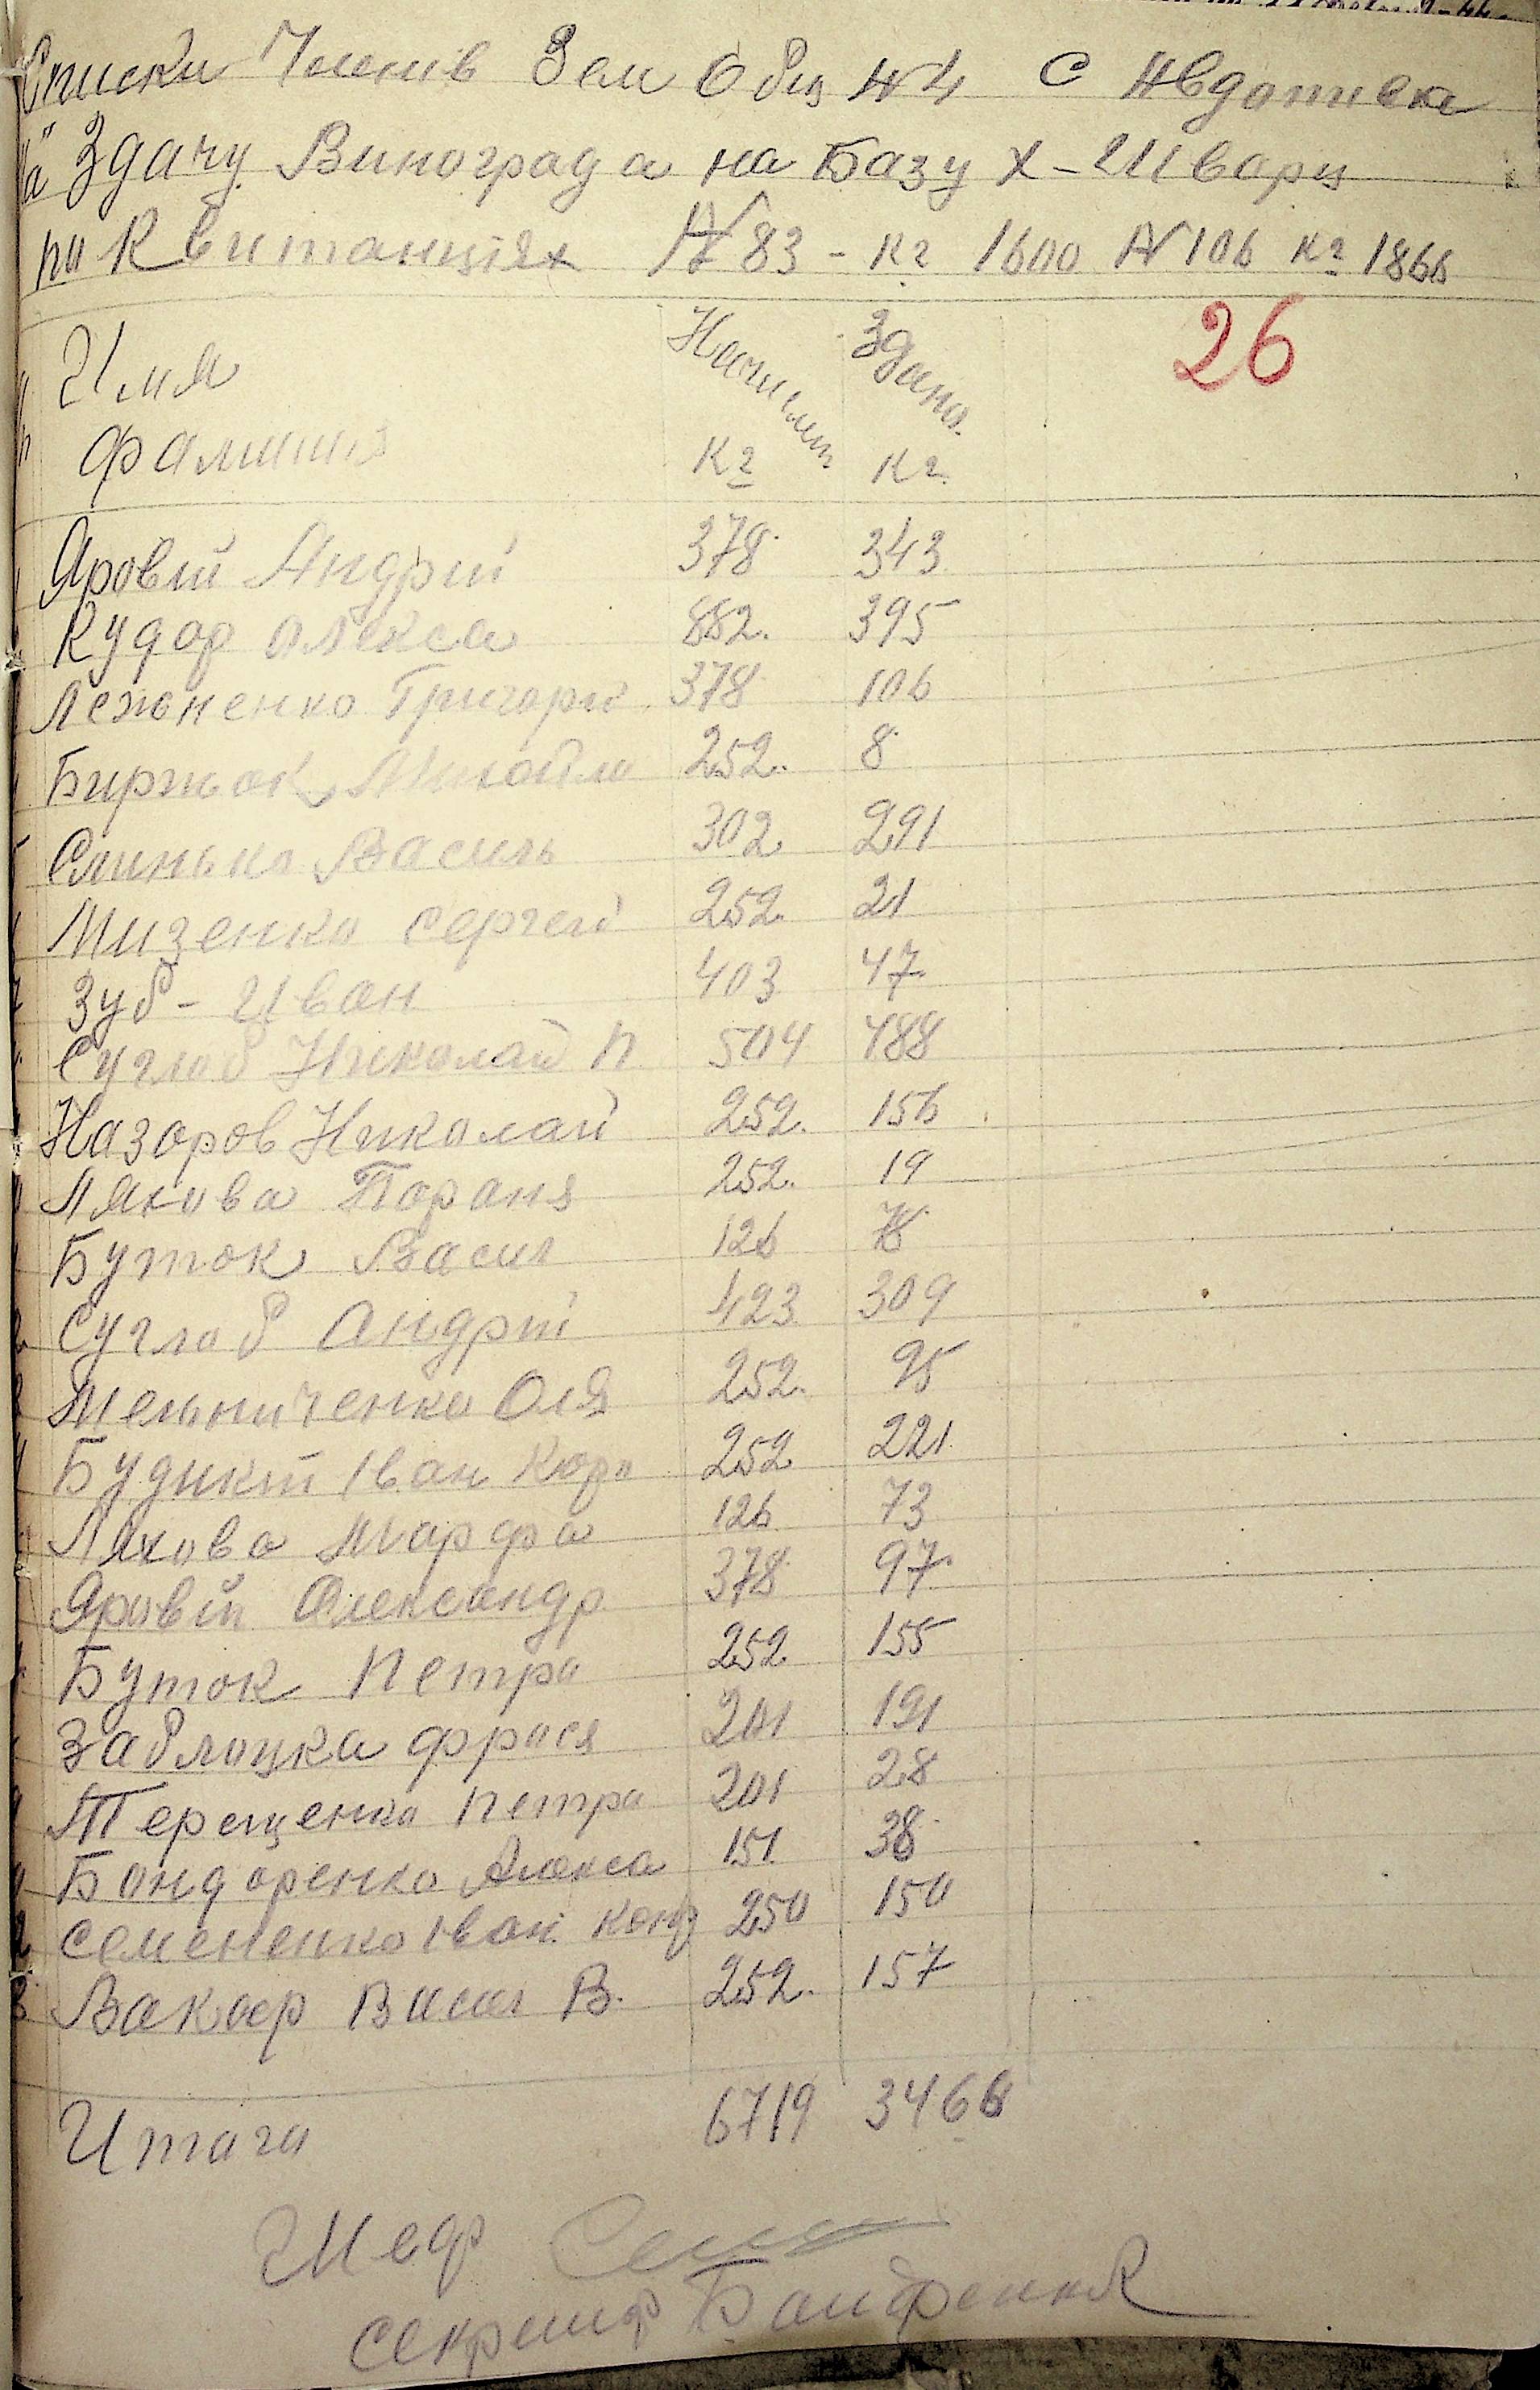 Списки Членів Зем Общ №4 С Авдотивка
на Здачу Винограда на Базу Х-Шварц
по Квитанціях № 83 - кг 1600 № 106 кг 1866
26
Имя Начислит Здано
фамилия Кг Кг
Яровій Андрій 378 343
Кудор Олекса 882 395
Лежненко Григорій 378 106
Биржок Михайло 252 8
Слинько Василь 302 291
Мизенко Сергей 252 21
Зуб - Иван 403 47
Суглоб Николай П 504 488
Назоров Николай 252 156
Ляхова Пораня 252 19
Буток Васил 126 78
Суглоб Андрій 423 309
Мельниченко Оля 252 95
Будикій Іван Кор 252 221
Ляхова Марфа 126 73
Яровій Олександр 378 97
Буток Петро 252 155
Заблоцка фрося 201 191
Терещенко Петро 201 28
Бондоренко Алекса 151 38
Семененко Іван Конд 250 150
Вакаер Васил В. 252 157
Итого 6719 3466
Шеф
секретар